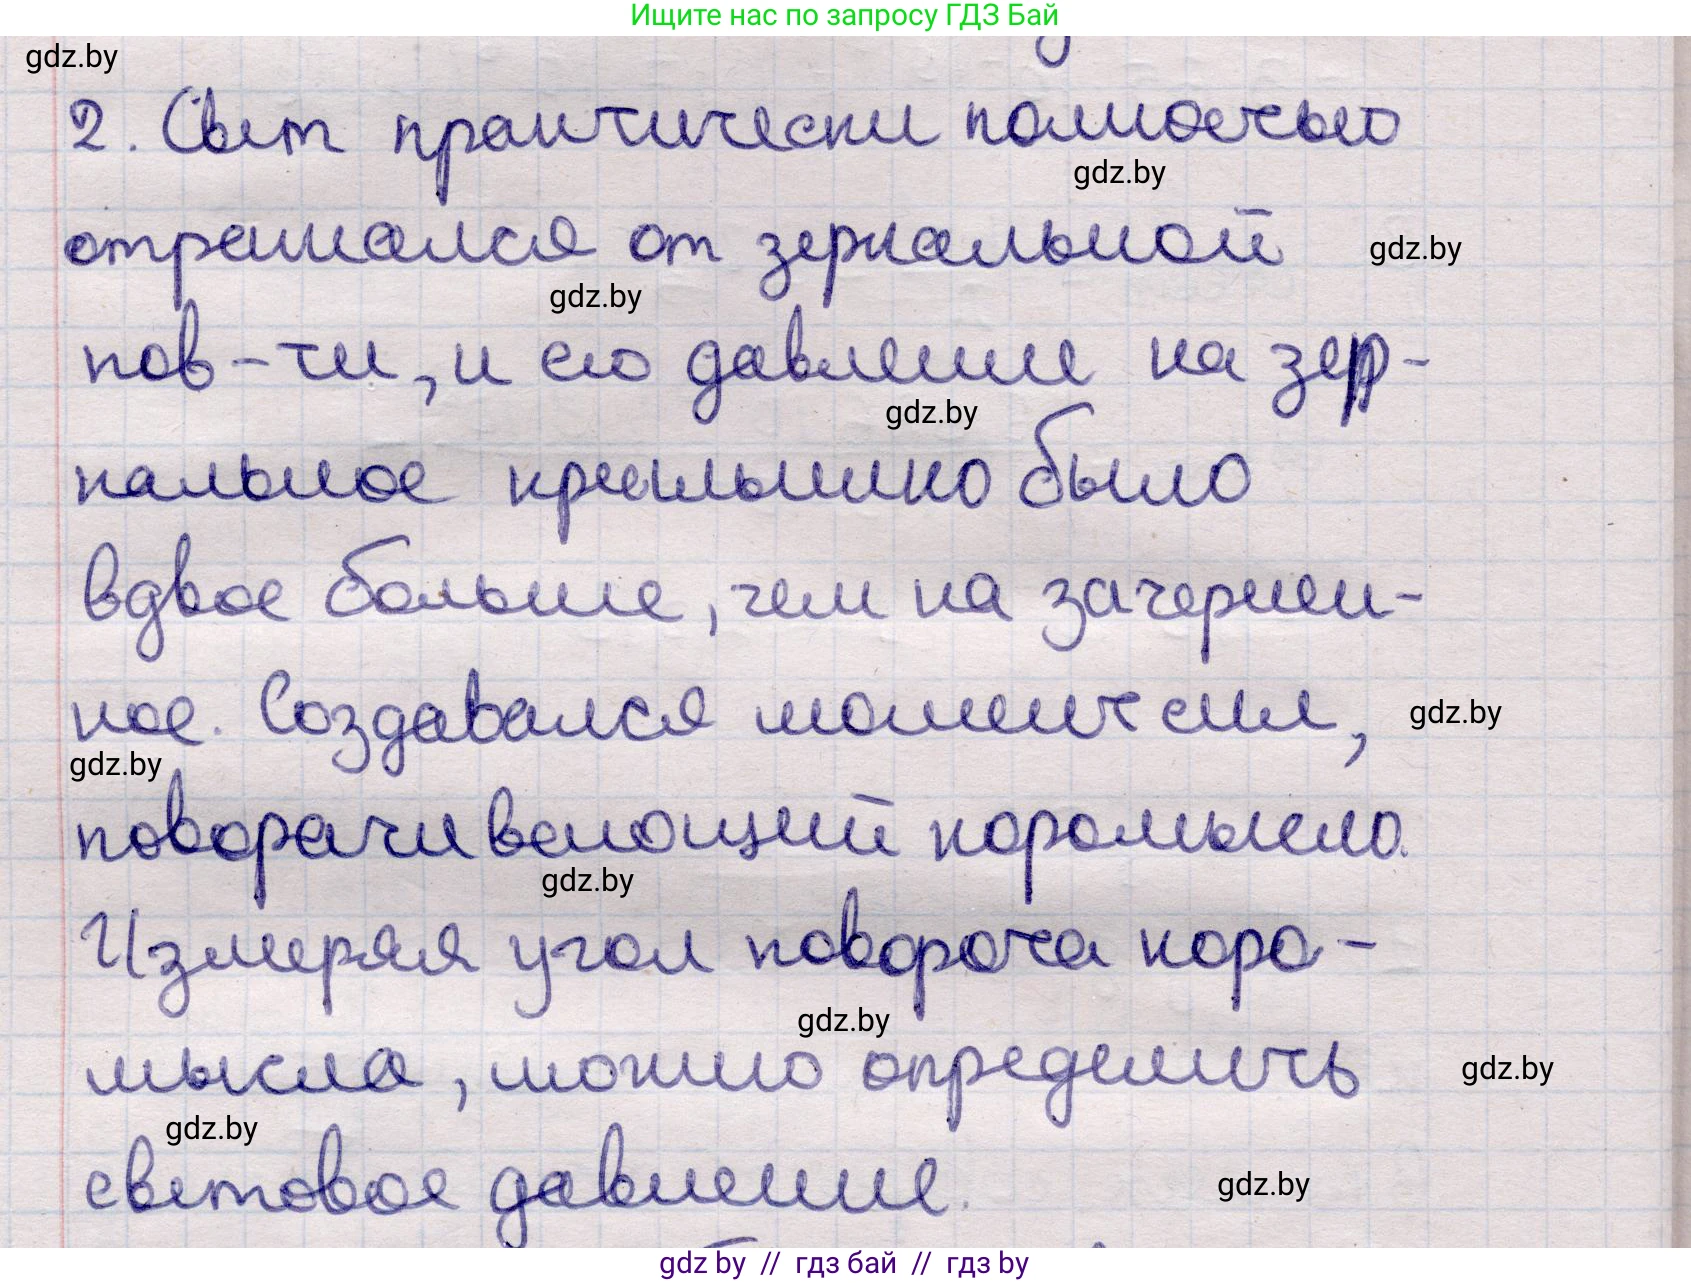 Ищите нас по запросу ГДЗ Бай
gdz.by
2. Свет практически полностью
gdz.by
отражался от зеркальной
gdz.by
gdz.by
пов-ти, и его давление на зер-
gdz.by
кальное крылышко было
вдвое больше, чем на зачернен-
ное. Создавался момент сил,
gdz.by
gdz.by
поворачивающий коромысло.
gdz.by
Измеряя угол поворота коро-
gdz.by
мысла, можно определить
gdz.by
gdz.by
световое давление.
gdz.by
gdz by // гдз бай // гдз by